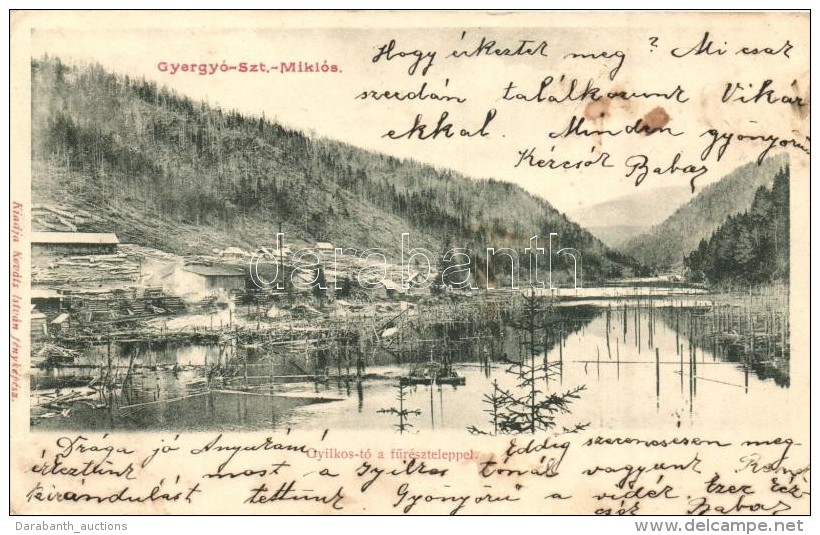 Gyergyó-Szt.-Miklós.
Hogy érkeztek meg? Mi csak
szerdán találkozunk Viká
ekkal. Minden gyönyörű
Kércsör Babaz
Kiadja Kováts István fényképész.
darabanth
Gyilkos-tó a fűrészteleppel.
Drága jó Anyukám Eddig szerencsésen meg
érkeztünk most a Gyilkos tónál vagyunk
kirándulást tettünk Gyönyörű a vidék Ezer
csók Babaz
Darabanth_auctions